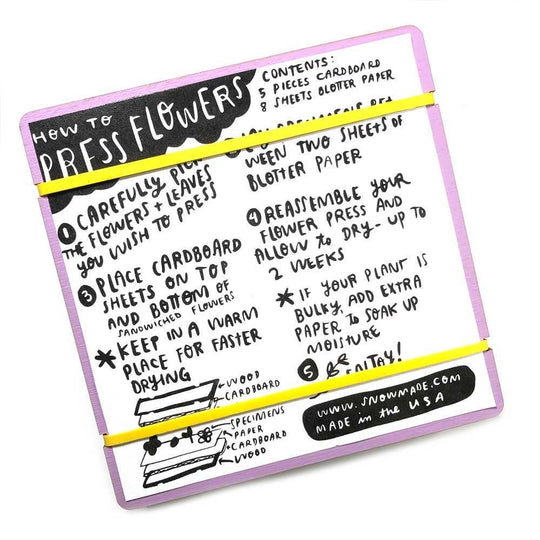 HOW TO
PRESS FLOWERS
CONTENTS:
5 PIECES CARDBOARD
8 SHEETS BLOTTER PAPER
1 CAREFULLY
THE FLOWERS + LEAVES
YOU WISH TO PRESS
WEEN TWO SHEETS OF
BLOTTER PAPER
3 PLACE CARDBOARD
SHEETS ON TOP
AND BOTTOM OF
SANDWICHED FLOWERS
* KEEP IN A WARM
PLACE FOR FASTER
DRYING
4 REASSEMBLE YOUR
FLOWER PRESS AND
ALLOW to DRY - UP TO
2 WEEKS
* IF YOUR PLANT IS
BULKY, ADD EXTRA
PAPER to SOAK UP
MOISTURE
5
WOOD
CARDBOARD
SPECIMENS
PAPER
CARDBOARD
WOOD
WWW.SNOWMADE.COM
MADE in the USA